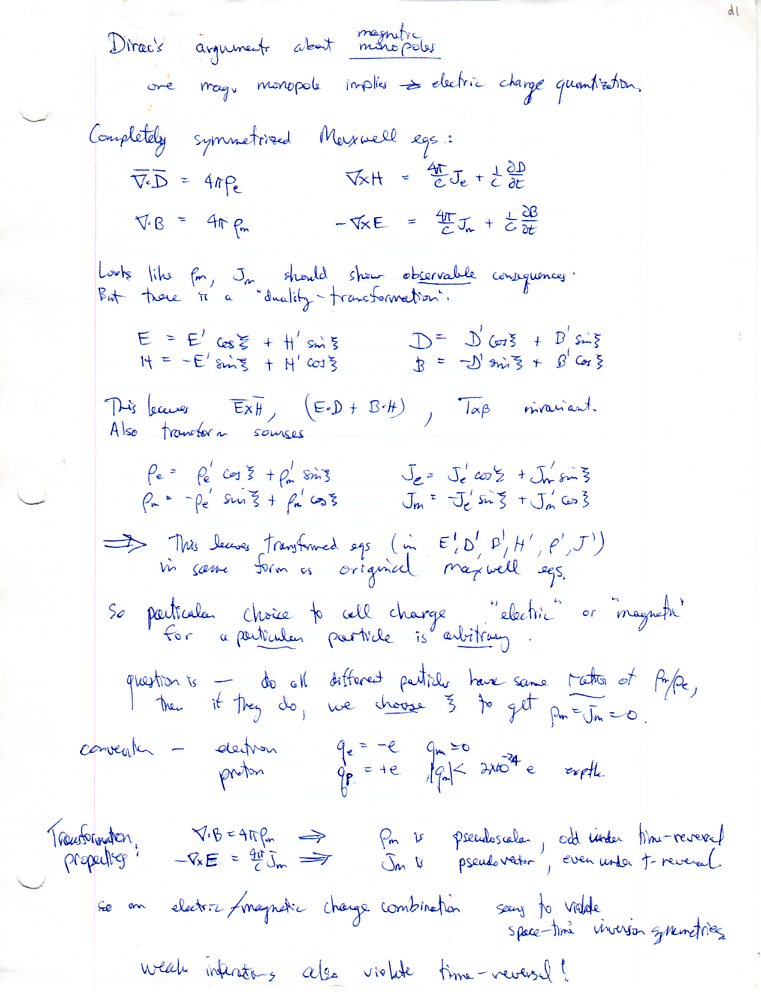 d1
Dirac's arguments about magnetic monopoles
one magn monopole implies → electric charge quantization.
Completely symmetrized Maxwell eqs:
∇·D = 4πρe ∇×H = 4π/c Je + 1/c ∂D/∂t
∇·B = 4πρm -∇×E = 4π/c Jm + 1/c ∂B/∂t
Looks like ρm, Jm should show observable consequences.
But there is a "duality-transformation".
E = E' cosξ + H' sinξ D = D' cosξ + B' sinξ
H = -E' sinξ + H' cosξ B = -D' sinξ + B' cosξ
This leaves E×H, (E·D + B·H), Tαβ invariant.
Also transform sources
ρe = ρe' cosξ + ρm' sinξ Je = Je' cosξ + Jm' sinξ
ρm = -ρe' sinξ + ρm' cosξ Jm = -Je' sinξ + Jm' cosξ
⇒ This leaves transformed eqs (in E', D', B', H', ρ', J')
in same form as original maxwell eqs.
So particular choice to call charge "electric" or "magnetic"
for a particular particle is arbitrary.
question is — do all different particles have same ratio of ρm/ρe,
then if they do, we choose ξ to get ρm = Jm = 0.
convention — electron qe = -e qm = 0
proton qp = +e |qm| < 2×10^-24 e exptl.
Transformation properties: ∇·B = 4πρm ⇒ ρm is pseudoscalar, odd under time-reversal
-∇×E = 4π/c Jm ⇒ Jm is pseudovector, even under t-reversal
so an electric/magnetic charge combination seems to violate
space-time inversion symmetries
weak interactions also violate time-reversal!